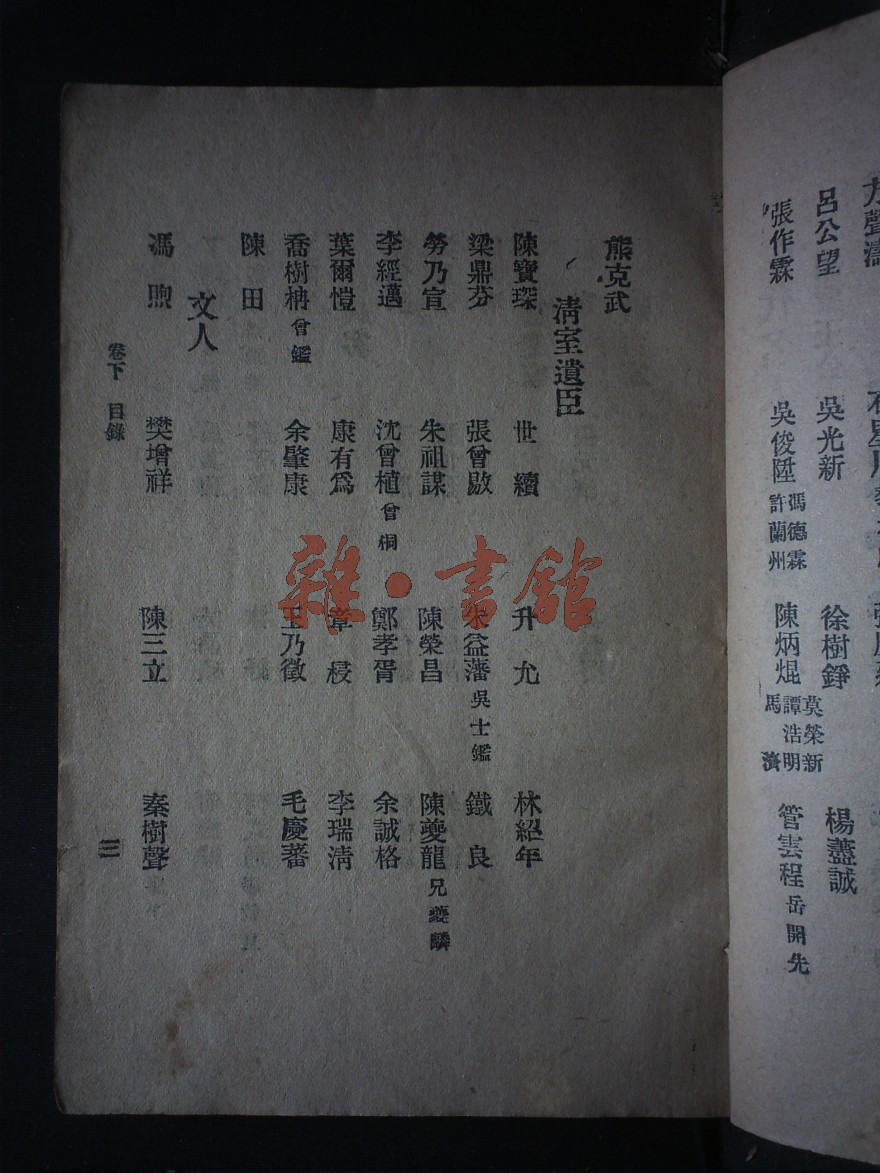 呂公望　吳光新　徐樹錚　楊藎誠
張作霖　吳俊陞　馮德霖　許蘭州　陳炳焜　莫榮新　譚浩明　馬濟　管雲程　岳開先
熊克武
清室遺臣
陳寶琛　世續　升允　林紹年
梁鼎芬　張曾敭　朱益藩　吳士鑑　鐵良
勞乃宣　朱祖謀　陳榮昌　陳夔龍　兄夔麟
李經邁　沈曾植　曾桐　鄭孝胥　余誠格
葉爾愷　康有爲　章梫　李瑞清
喬樹枏　曾鑑　余肇康　王乃徵　毛慶蕃
陳田
文人
馮煦　樊增祥　陳三立　秦樹聲
卷下　目錄
三
雜·書館